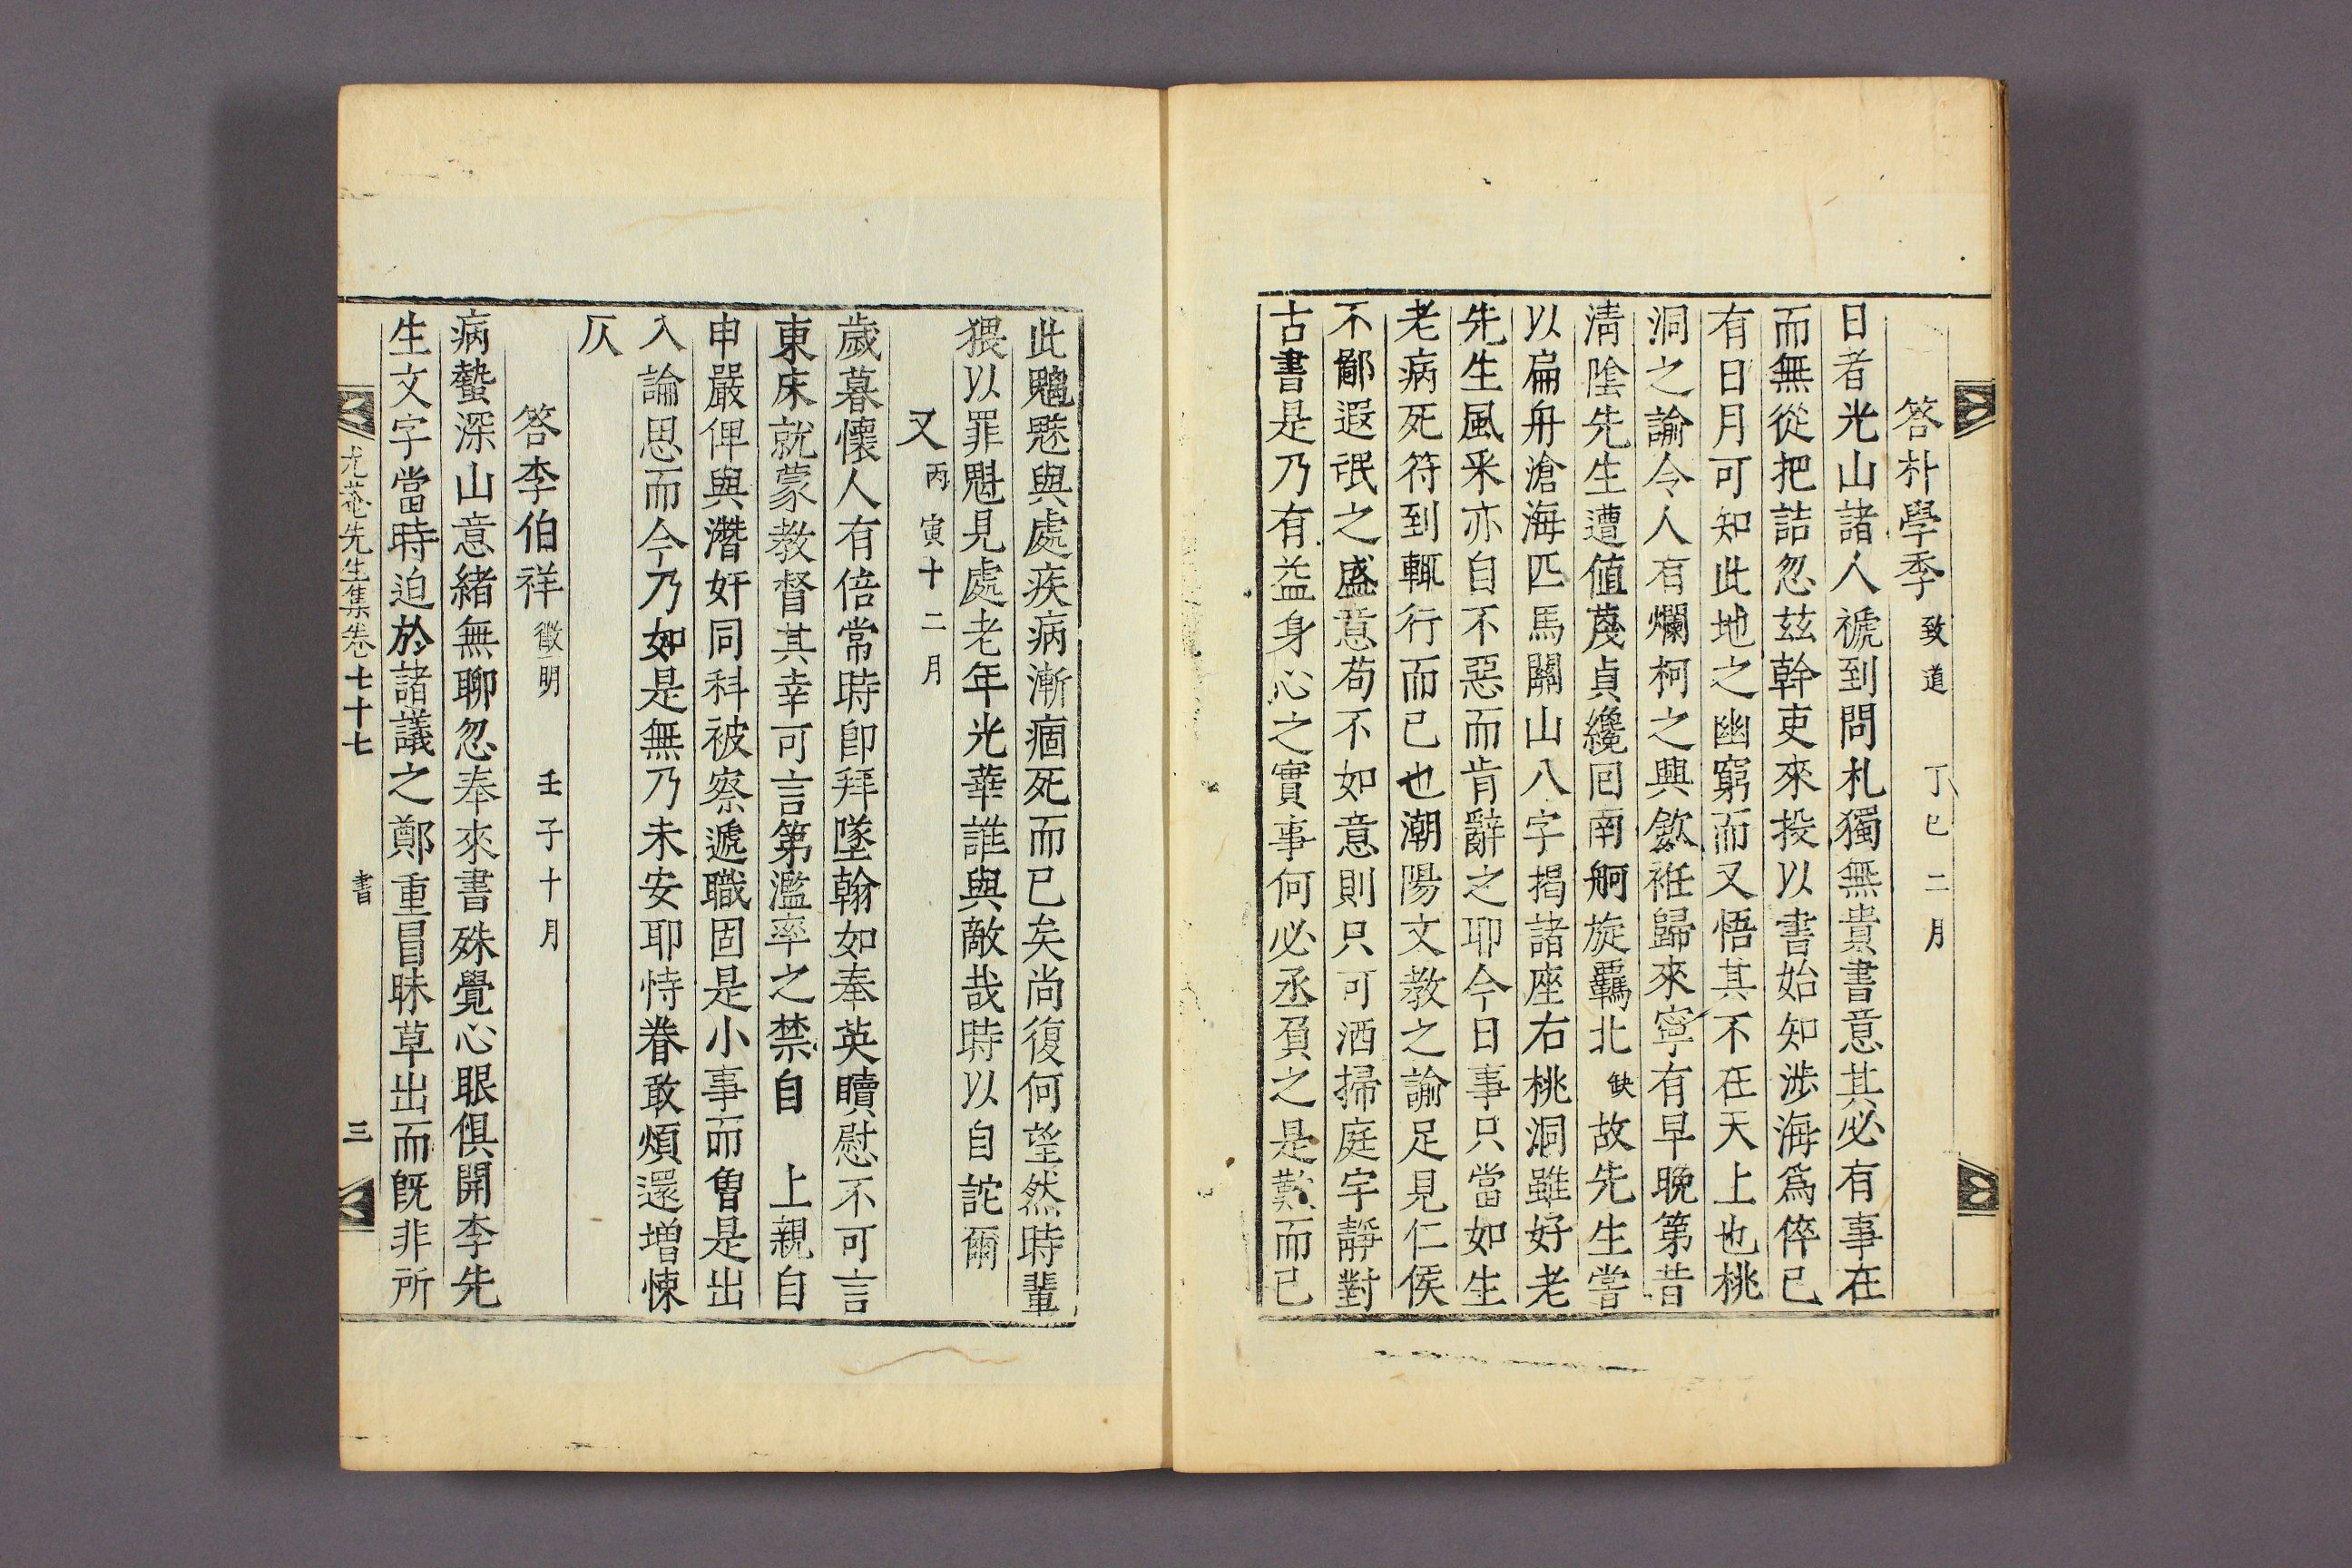 答朴學季 致道 丁巳二月
日者光山諸人褫到問札獨無貴書意其必有事在
而無從把詰忽玆幹吏來投以書始知涉海爲倅已
有日月可知此地之幽窮而又悟其不在天上也桃
洞之諭令人有爛柯之興斂袵歸來寧有早晚第昔
淸陰先生遭値蔑貞纔回南舸旋羈北 缺 故先生嘗
以扁舟滄海匹馬關山八字揭諸座右桃洞雖好老
先生風采亦自不惡而肯辭之耶今日事只當如生
老病死符到輒行而已也潮陽文教之諭足見仁侯
不鄙遐氓之盛意苟不如意則只可洒掃庭宇靜對
古書是乃有益身心之實事何必丞負之是歎而已
此魑魅與處疾病漸痼死而已矣尚復何望然時輩
猥以罪魁見處老年光華誰與敵哉時以自詑爾
又 丙寅十二月
歲暮懷人有倍常時卽拜墜翰如奉英眄慰不可言
東床就蒙教督其幸可言第濫率之禁自 上親自
申嚴俾與濳奸同科被察遞職固是小事而曾是出
入論思而今乃如是無乃未安耶恃眷敢煩還增悚
仄
答李伯祥 徵明 壬子十月
病蟄深山意緖無聊忽奉來書殊覺心眼俱開李先
生文字當時迫於諸議之鄭重冒昧草出而旣非所
尤菴先生集卷七十七 書 三